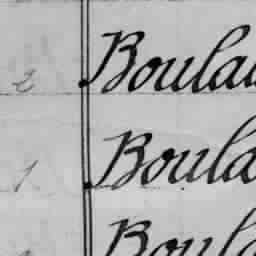 2 Boulau
1 Boula
Boula